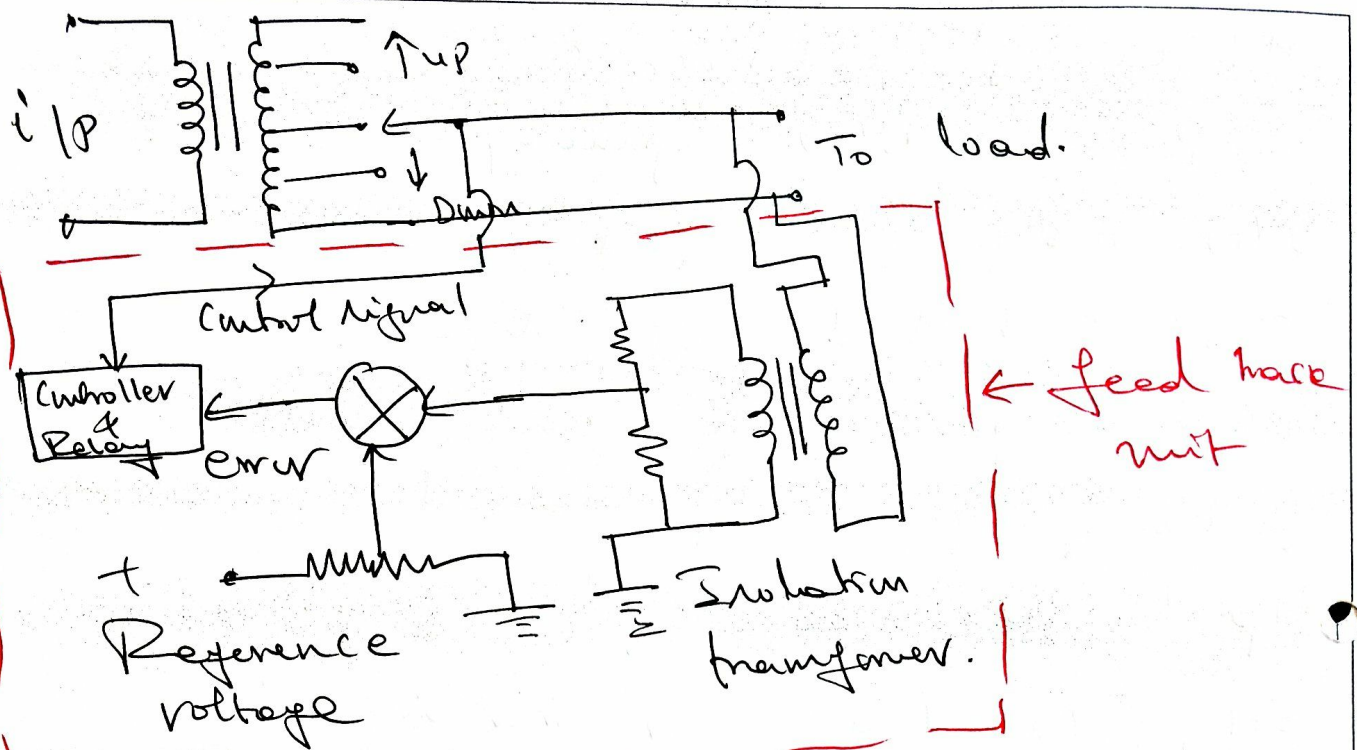 i/p
↑ up
To load.
↓
Down
Control signal
Controller
&
Relay
error
← feed back
unit
+
Reference
voltage
Isolation
transformer.